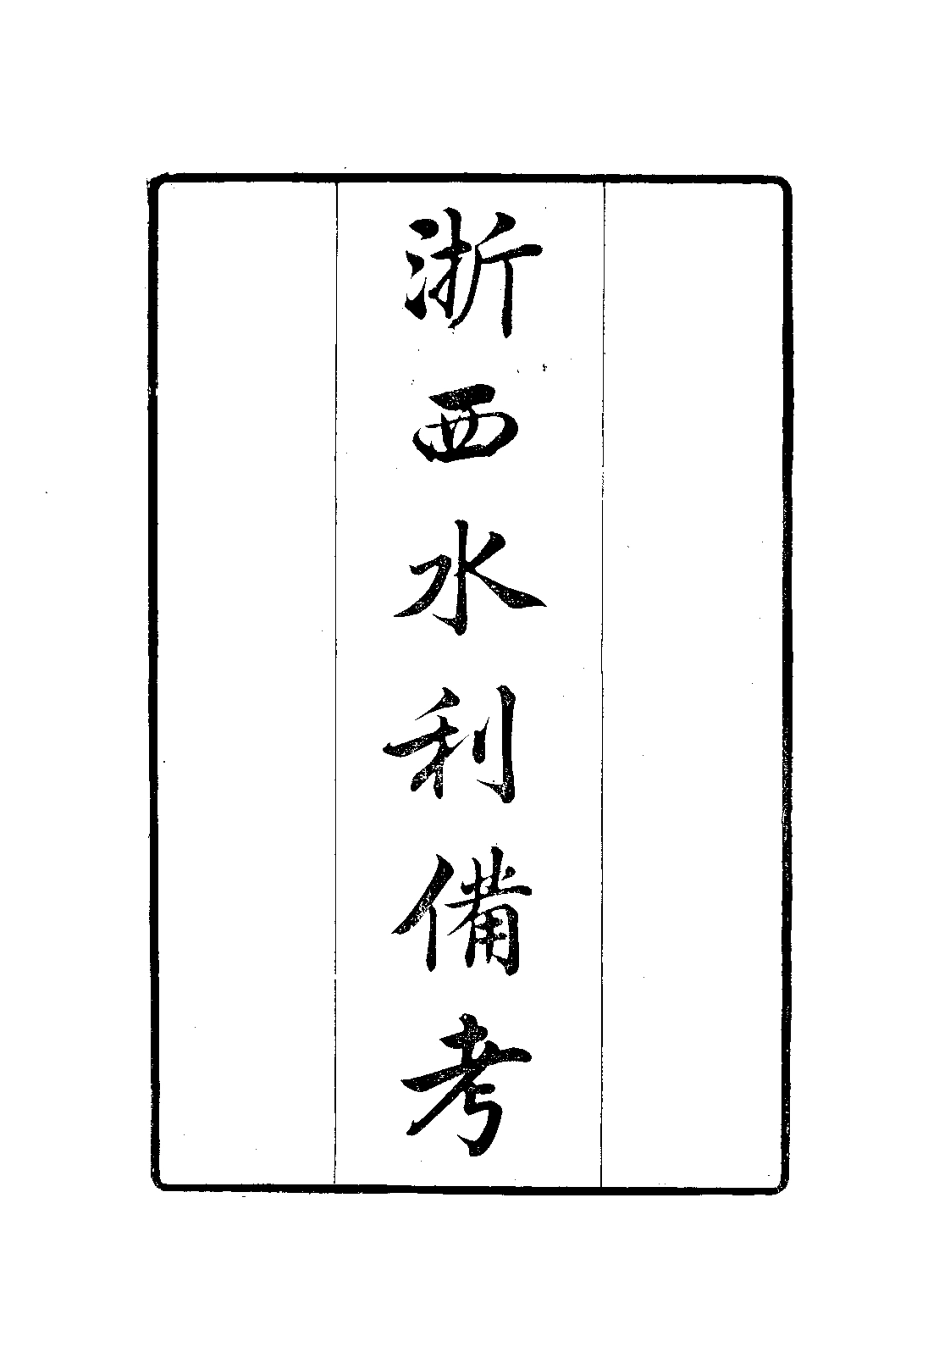 浙西水利備考